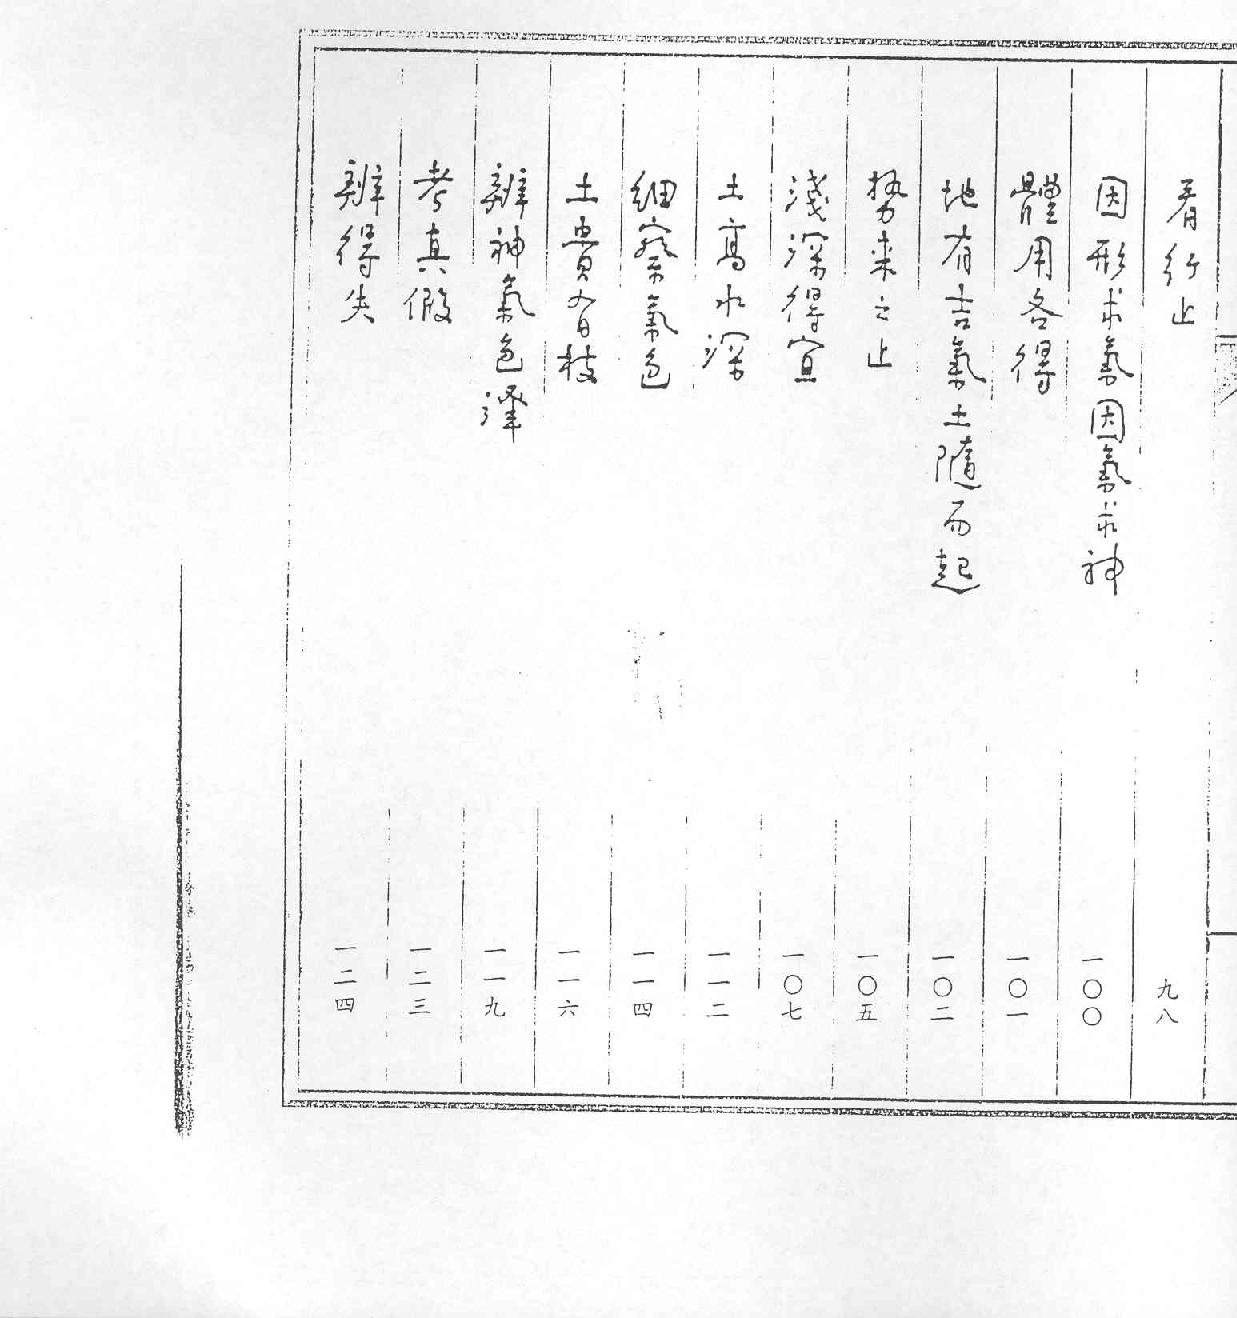 看行止 九八
因形求氣因氣求神 一〇〇
體用各得 一〇一
地有吉氣土隨而起 一〇二
勢來之止 一〇五
淺深得宜 一〇七
土高水深 一一二
細察氣色 一一四
土貴有枝 一一六
辨神氣色澤 一一九
考真假 一二三
辨得失 一二四